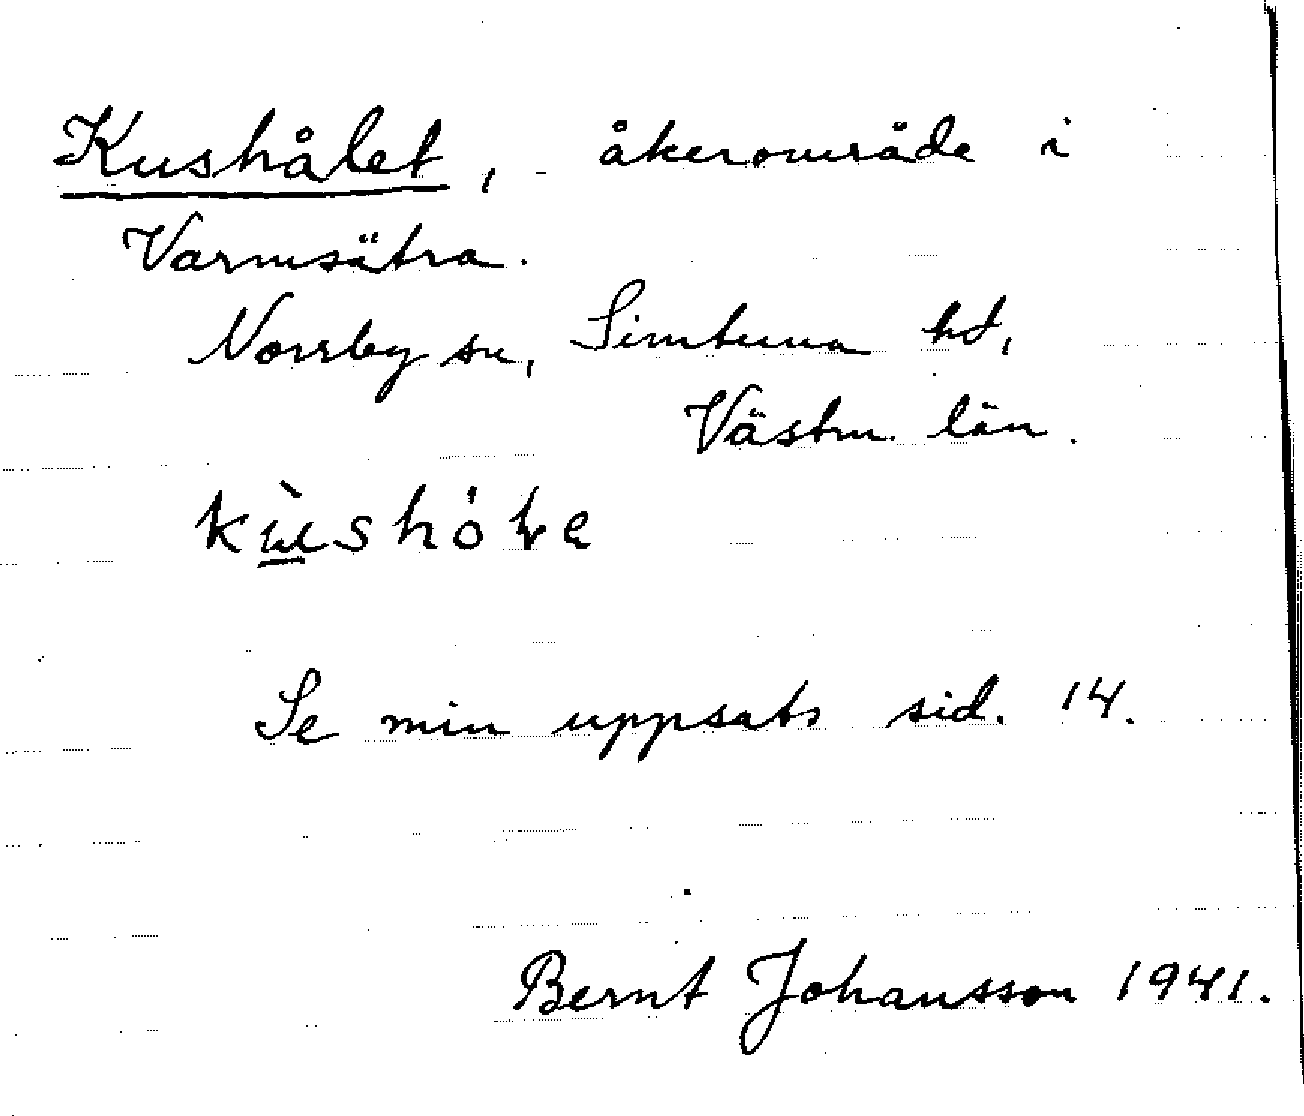 Kushålet, åkerområde i
Varmsätra.
Norrby sn, Simtuna hd,
Västm. län.
Se min uppsats sid. 14.
Bernt Johansson 1941.